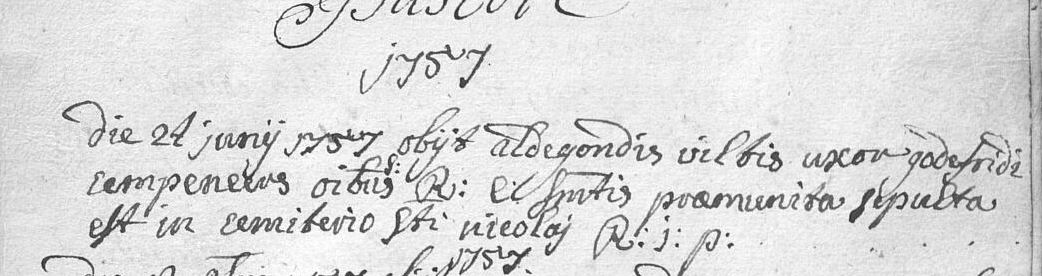 1757
die 24 junij 1757 obijt aldegondis vilbis uxor godefridi
cempeneers oibus R: Ec: Smtis præmunita sepulta
est in cemiterio Sti nicolaj R: j: p:
1757